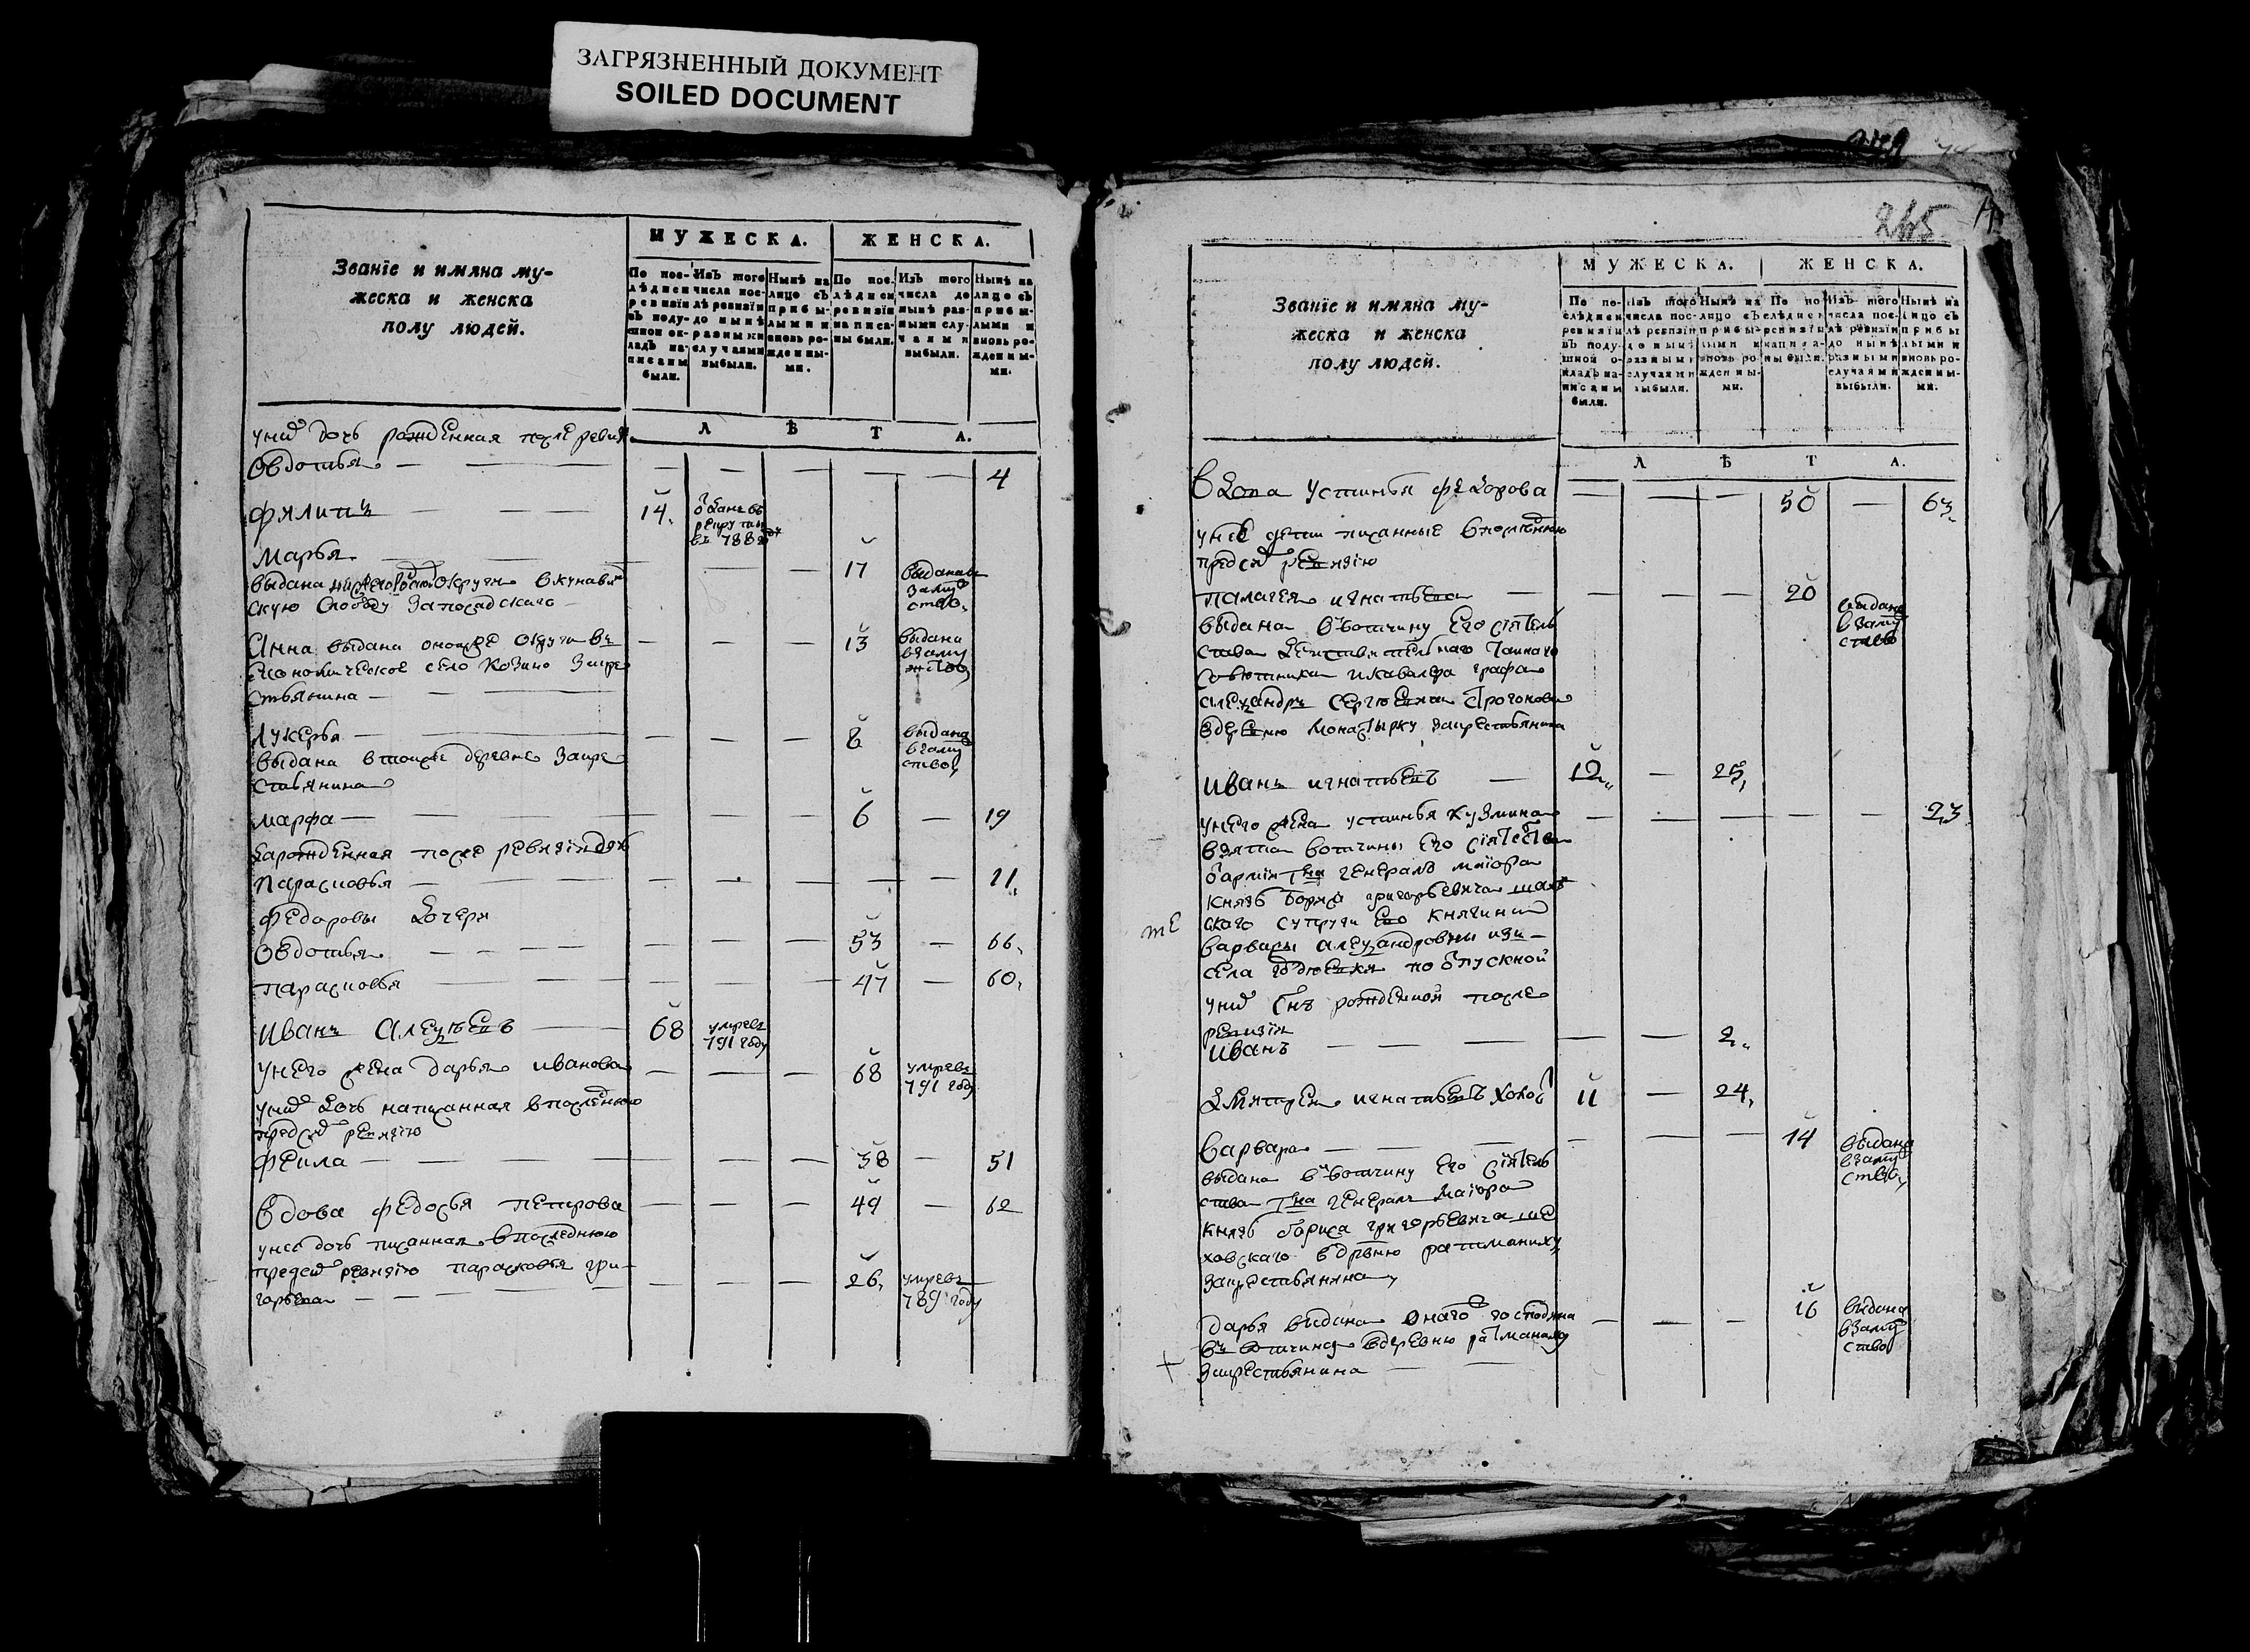 ЗАГРЯЗНЕННЫЙ ДОКУМЕНТ
SOILED DOCUMENT
МУЖЕСКА. ЖЕНСКА.
Званїе и имяна му-
жеска и женска
полу людей.
По пос-лѣдней ревизїи въ поду-шной ок-ладъ на-писаны были.
Изъ того числа пос-лѣ ревизїи до нынѣ разными случаями выбыли.
Нынѣ на лицо съ прибы-лыми и вновь ро-жденны-ми.
По пос-лѣдней ревизїи написа-ны были.
Изъ того числа до нынѣ раз-ными слу-чаями выбыли.
Нынѣ на лицо съ прибы-лыми и вновь ро-жденны-ми.
Л Ѣ Т А.
у ней дочь рожденная после ревизїи
Овдотья 4
Филипъ 14. отданъ въ рекруты въ 788 году
Марья 17 выдана в замужство
выдана округи в кунавин
скую слободу за посадскаго
Анна выдана оной же округи въ 13 выдана взамужство
економическое село Козино за кре
стьянина
Лукерья 8 выдана взамужство
выдана в той же деревне за кре
стьянина
Марфа 6 19
рожденная после ревизїи дочь
Парасковья 11.
Федоровы дочери
Овдотья 53 66.
Парасковья 47 60.
Иванъ Алексѣевъ 68 умре въ 791 году
у него жена Дарья Иванова 68 умре въ 791 году
у ней дочь написанная в последнюю
пред сей ревизїю
Фекла 38 51
Вдова Федосья Петрова 49 62
у нее дочь писанная в последнюю
пред сей ревизїю Парасковья Гри- 26. умре въ 789 году
горьева
245
МУЖЕСКА. ЖЕНСКА.
Званїе и имяна му-
жеска и женска
полу людей.
По по-слѣдней ревизїи въ поду-шной о-кладъ на-писаны были.
Изъ того числа пос-лѣ ревизїи до нынѣ разными случаями выбыли.
Нынѣ на лицо съ прибы-лыми и вновь ро-жденны-ми.
По по-слѣдней ревизїи написа-ны были.
Изъ того числа пос-лѣ ревизїи до нынѣ разными случаями выбыли.
Нынѣ на лицо съ прибы-лыми и вновь ро-жденны-ми.
Л Ѣ Т А.
Вдова Устинья Федорова 50 63.
у нее дети писанные в последнюю
пред сей ревизїю
Палагея Игнатьева 20 выдана взамужство
выдана в вотчину Его сїятель
ства действительнаго тайнаго
советника и кавалера графа
Александръ Сергѣевича Строгонова
в деревню Монастырку за крестьянина
Иванъ Игнатьевъ 12. 25.
у него жена Устинья Кузмина 23
взята вотчины Его сїятельства
от армїи генералъ маїора
князь Бориса Григорьевича Шахов
скаго супруги Ево княгини
Варвары Александровны из
села по отпускной
у ней сынъ рожденной после
ревизїи
Иванъ 2.
Дмитрей Игнатьевъ холос 11 24.
Варвара 14 выдана взамужство
выдана в вотчину Его сїятель
ства генералъ маїора
князь Бориса Григорьевича Ша
ховскаго в деревню Ратманиху
за крестьянина
Дарья выдана онаго господина 16 выдана взамужство
въ вотчину в деревню Ратманиху
за крестьянина